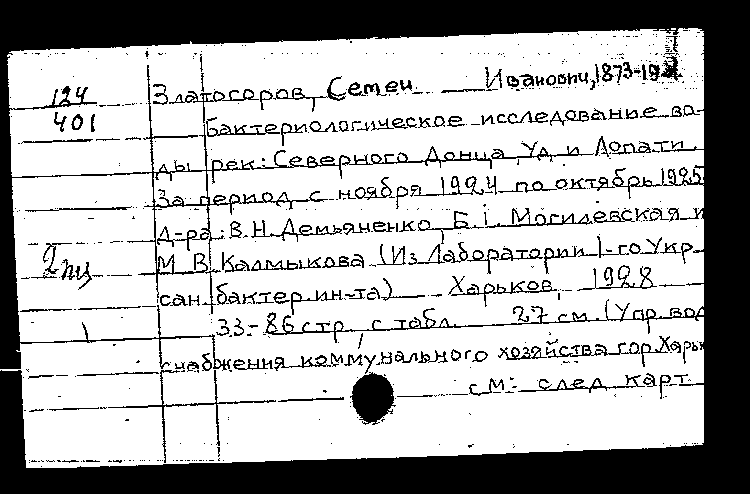 124
401
Златогоров, Семен Иванович, 1873-19
Бактериологическое исследование во-
ды рек: Северного Донца, Уд и Лопати.
За период с ноября 1924 по октябрь 1925
Д-ра: В. Н. Демьяненко, Б. І. Могилевская и
М. В. Калмыкова (Из Лаборатории 1-го Укр
сан. бактер. ин-та) Харьков, 1928
1 33-86 стр., с табл. 27 см. (Упр. вод
снабжения коммунального хозяйства гор. Харьк
см: след карт.